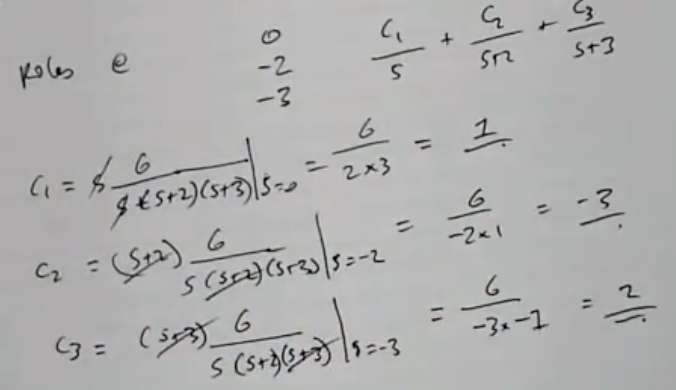 Poles @ 0 -2 -3 C₁/S + C₂/S+2 + C₃/S+3
C₁ = S 6/S(S+2)(S+3) |S=0 = 6/2×3 = 1
C₂ = (S+2) 6/S(S+2)(S+3) |S=-2 = 6/-2×1 = -3
C₃ = (S+3) 6/S(S+2)(S+3) |S=-3 = 6/-3×-1 = 2